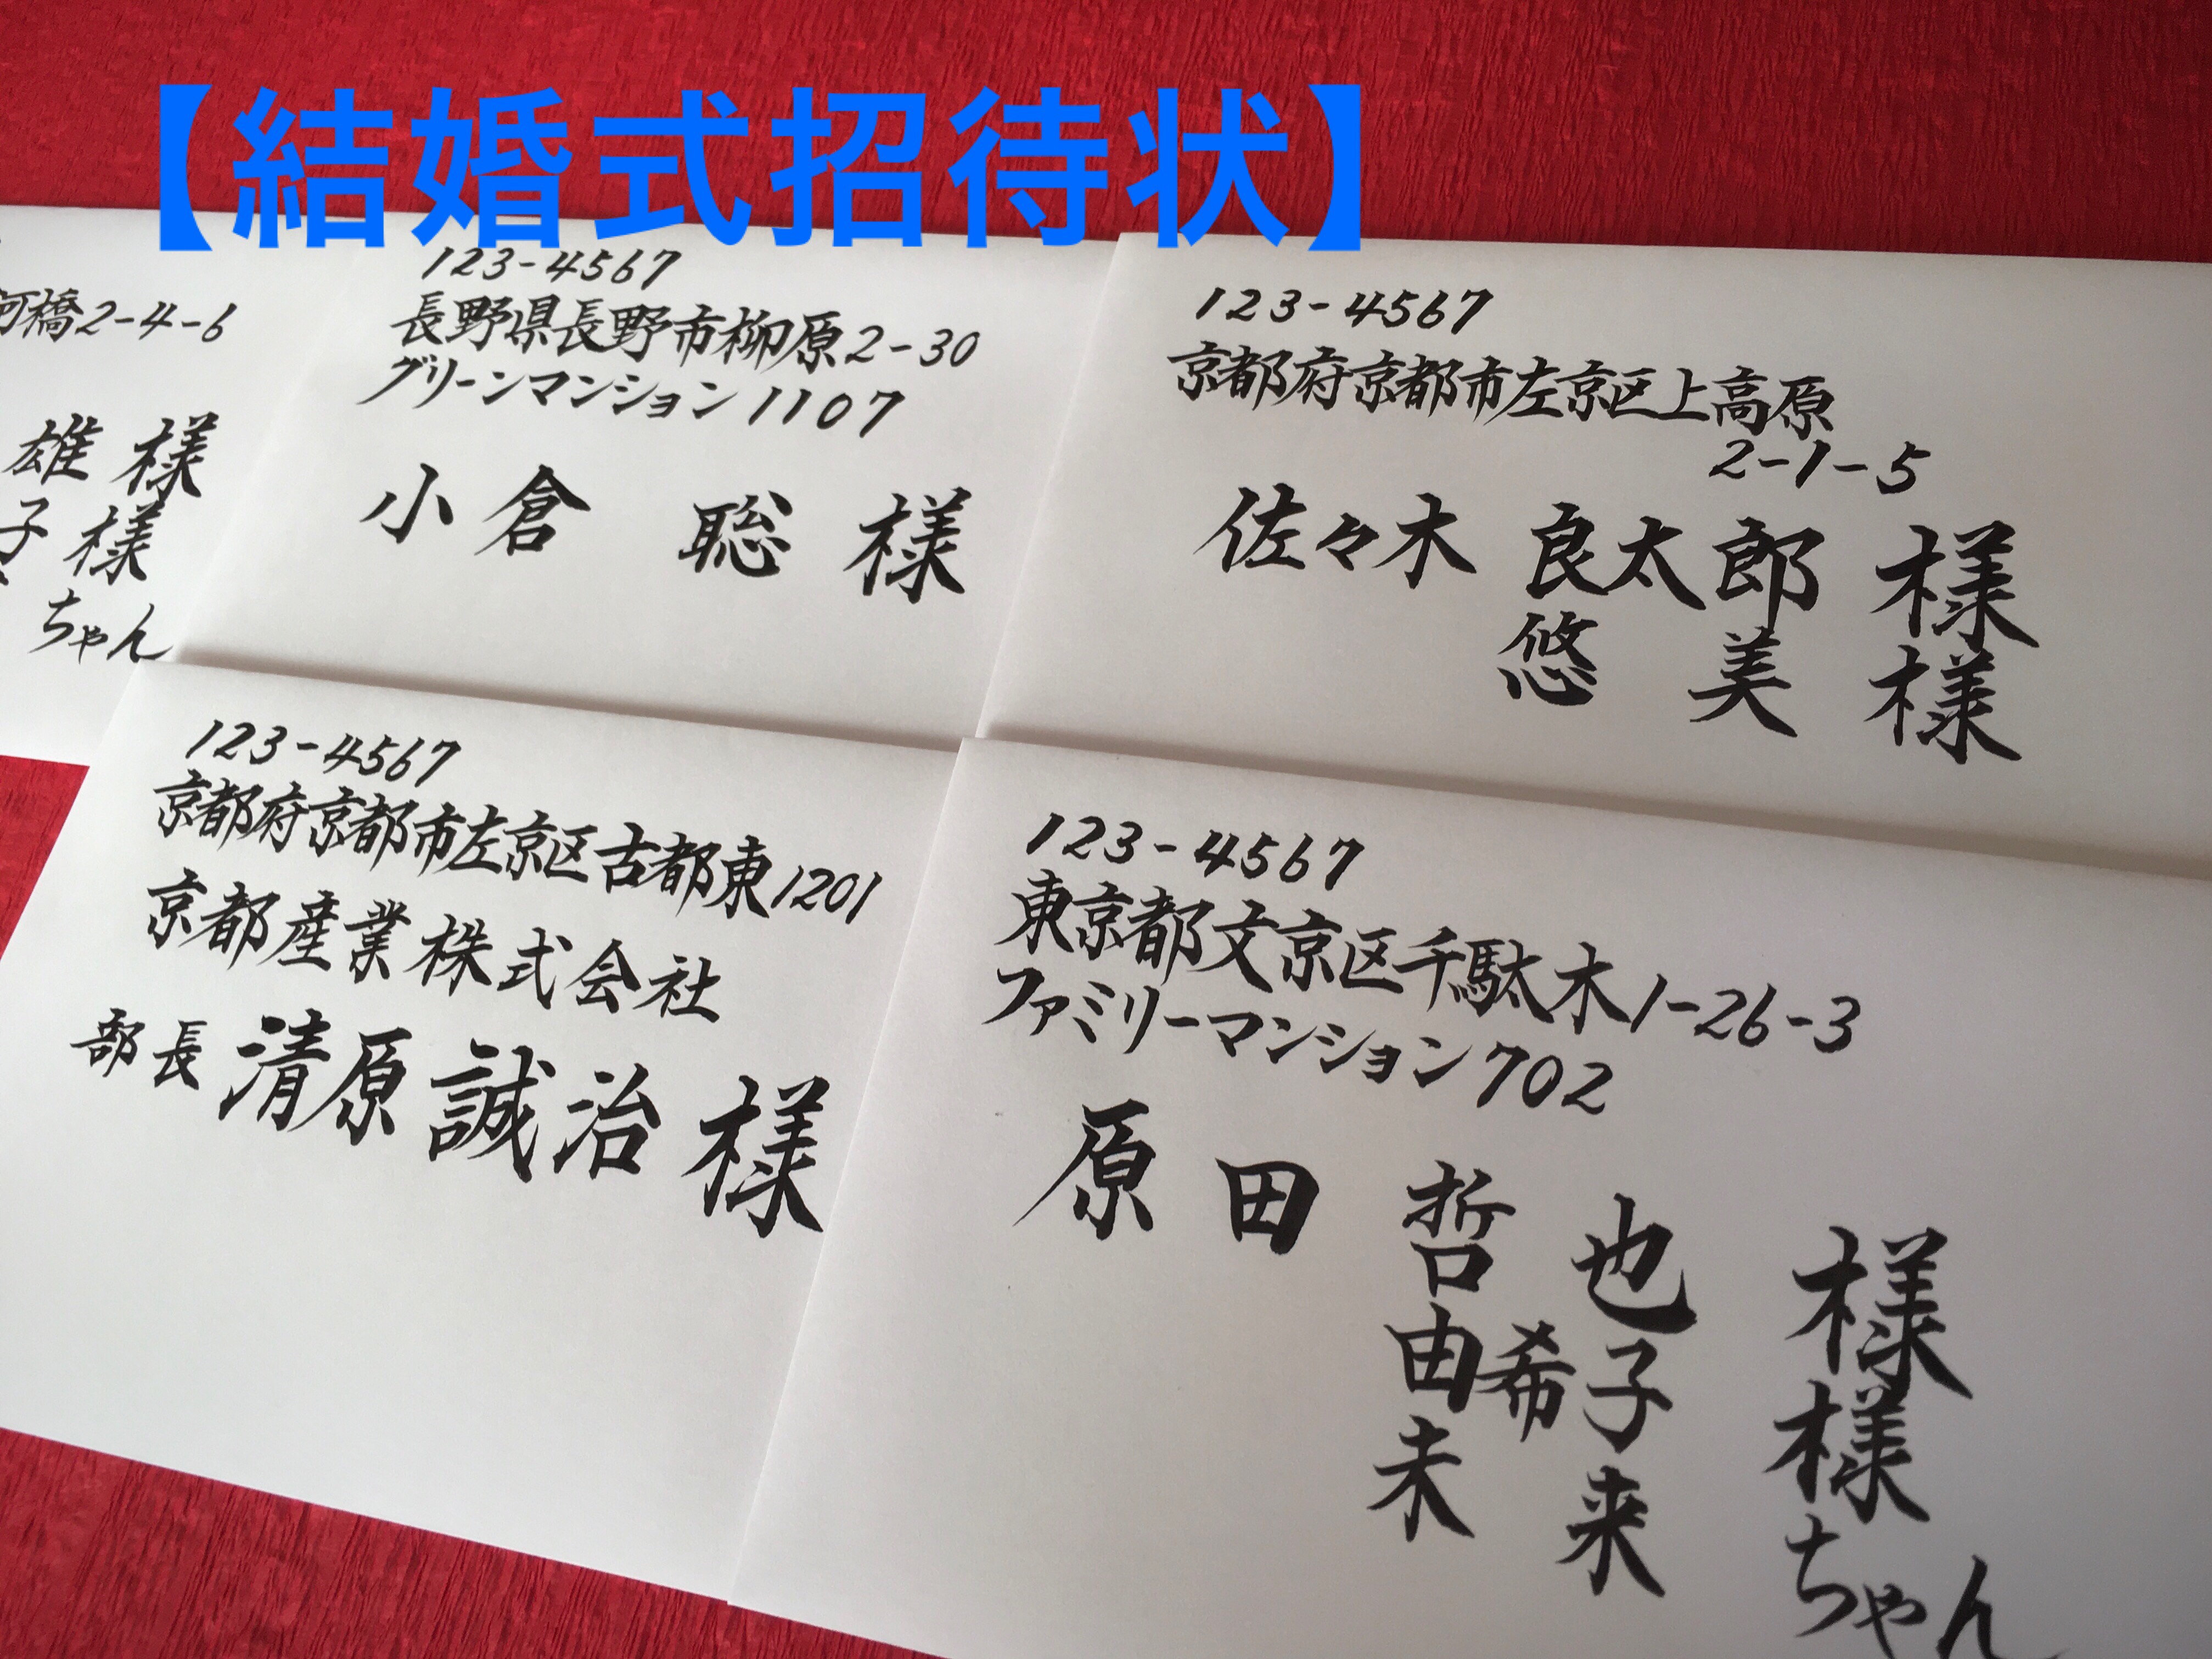 【結婚式招待状】
河橋2-4-6
雄 様
子 様
ちゃん
123-4567
長野県長野市柳原2-30
グリーンマンション1107
小倉 聡 様
123-4567
京都府京都市左京区上高原
2-1-5
佐々木 良太郎 様
悠 美 様
123-4567
京都府京都市左京区古都東1201
京都産業株式会社
部長 清原 誠治 様
123-4567
東京都文京区千駄木1-26-3
ファミリーマンション702
原田 哲也 様
由希子 様
未来 ちゃん